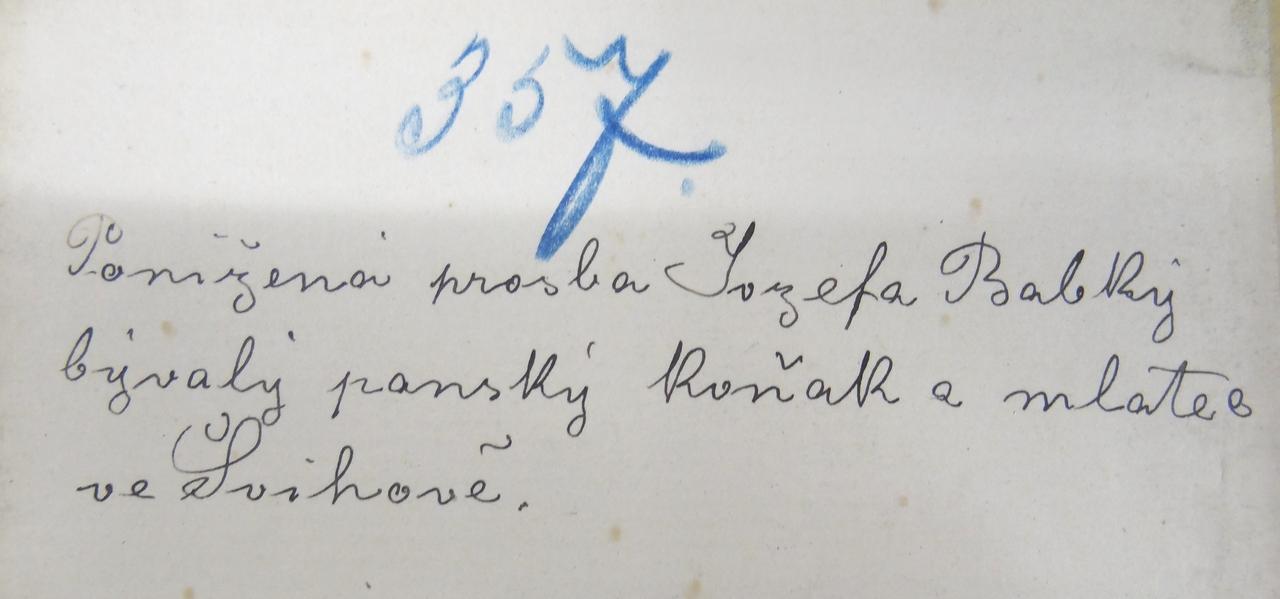 357.
Ponížená prosba Jozefa Babký
bývalý panský koňak a mlatec
ve Švihově.